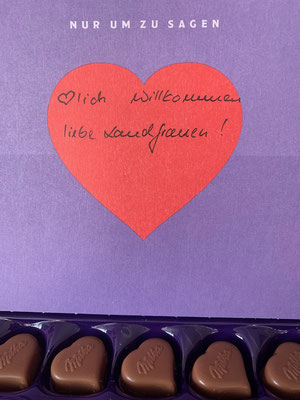 NUR UM ZU SAGEN
♡lich willkommen
liebe Landfrauen!
Milka
Milka
Milka
Milka
Milka